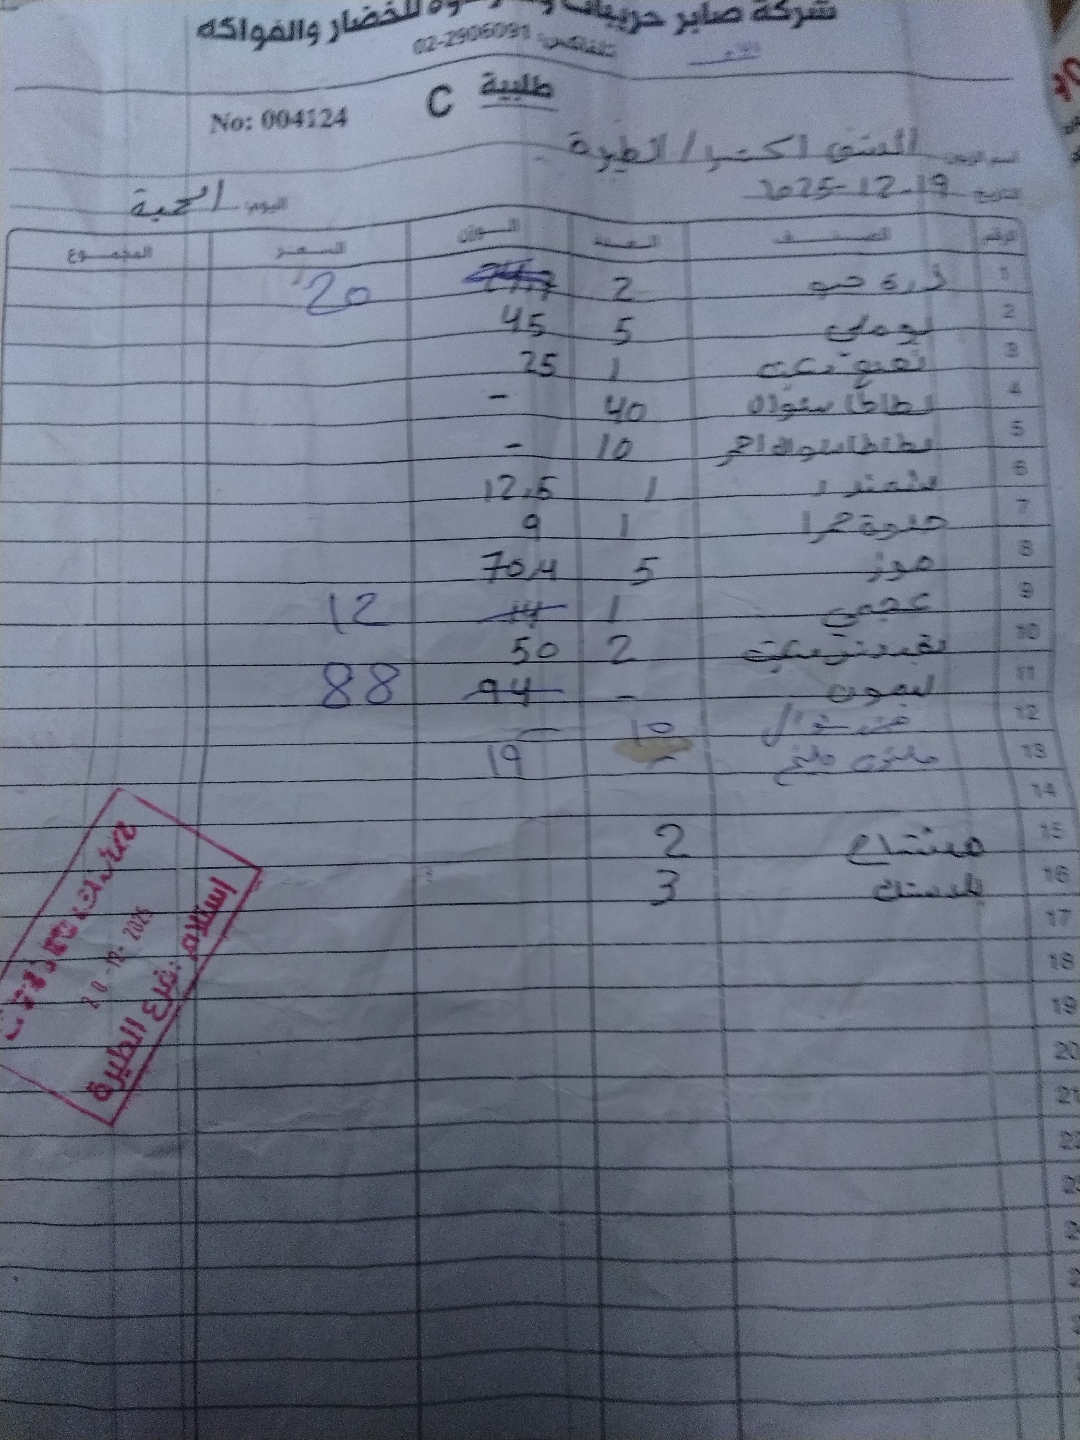 شركة صابر حريبات للخضار والفواكه
تلفاكس: 02-2906091
طلبية C
No: 004124
اسم الزبون: الشني اكسترا / الطيرة
التاريخ: 2025-12-19
اليوم: الجمعة
الرقم الصنف العدد الوزن السعر المجموع
1 ذرة حب 2 20
2 بوملي 5 45
3 1 25
4 بطاطا شوال 40 -
5 بطاطا شوال احمر 10 -
6 شمندر 1 12.5
7 حلوة حمرا 1 9
8 موز 5 70.4
9 عجمي 1 14 12
10 2 50
11 ليمون - 94 88
12 شوال 10 —
13 - 19
14
15 مشتاح 2
16 بلاستك 3
17
18
19
20
21
استلام فرع الطيرة
20-12-2025